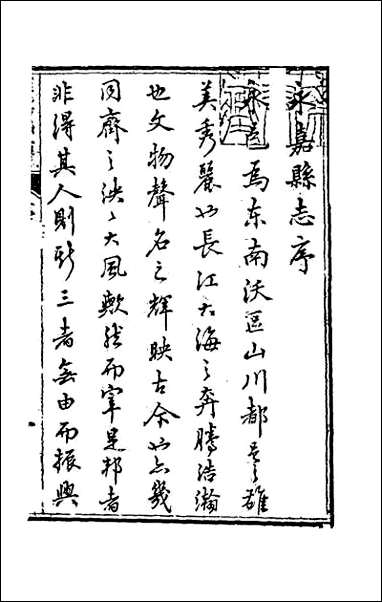 永嘉縣志序
永嘉為东南沃區山川都邑之雄
美秀麗以長江大海之奔騰浩瀚
也文物聲名之輝映古今以亦幾
同齊之泱〻大風歟然而宰是邦者
非得其人則斯三者無由而振興